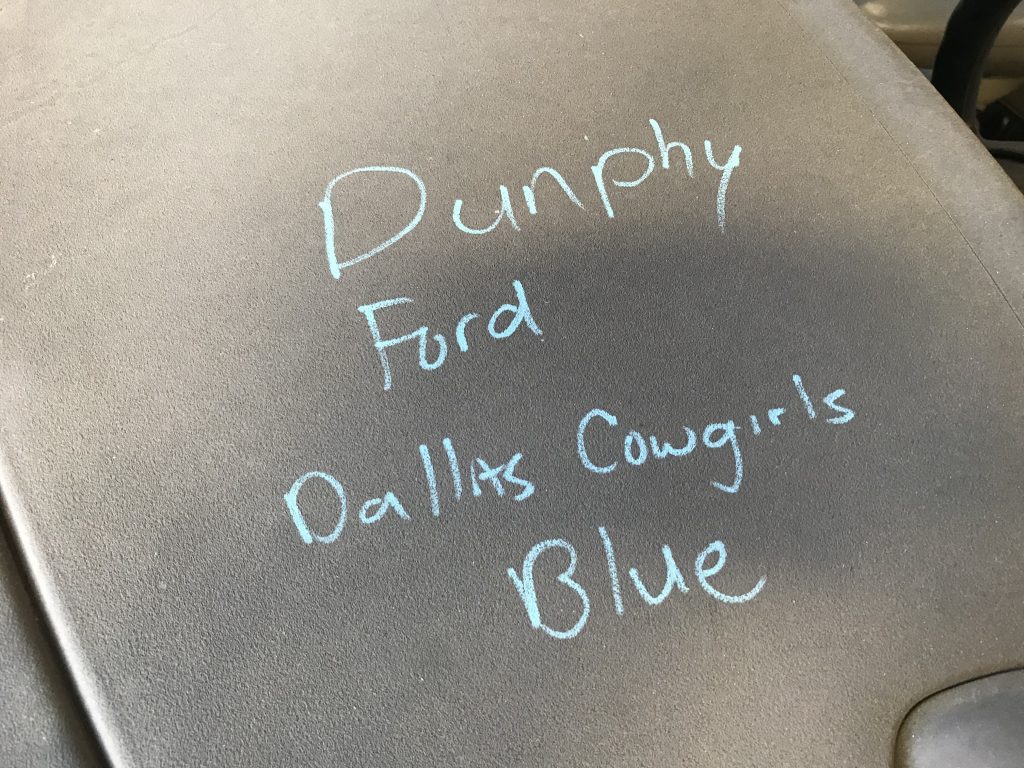 Dunphy
Ford
Dallas Cowgirls
Blue